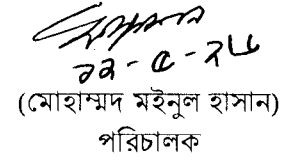 ২২-৫-২৬
(মোহাম্মদ মইনুল হাসান)
পরিচালক